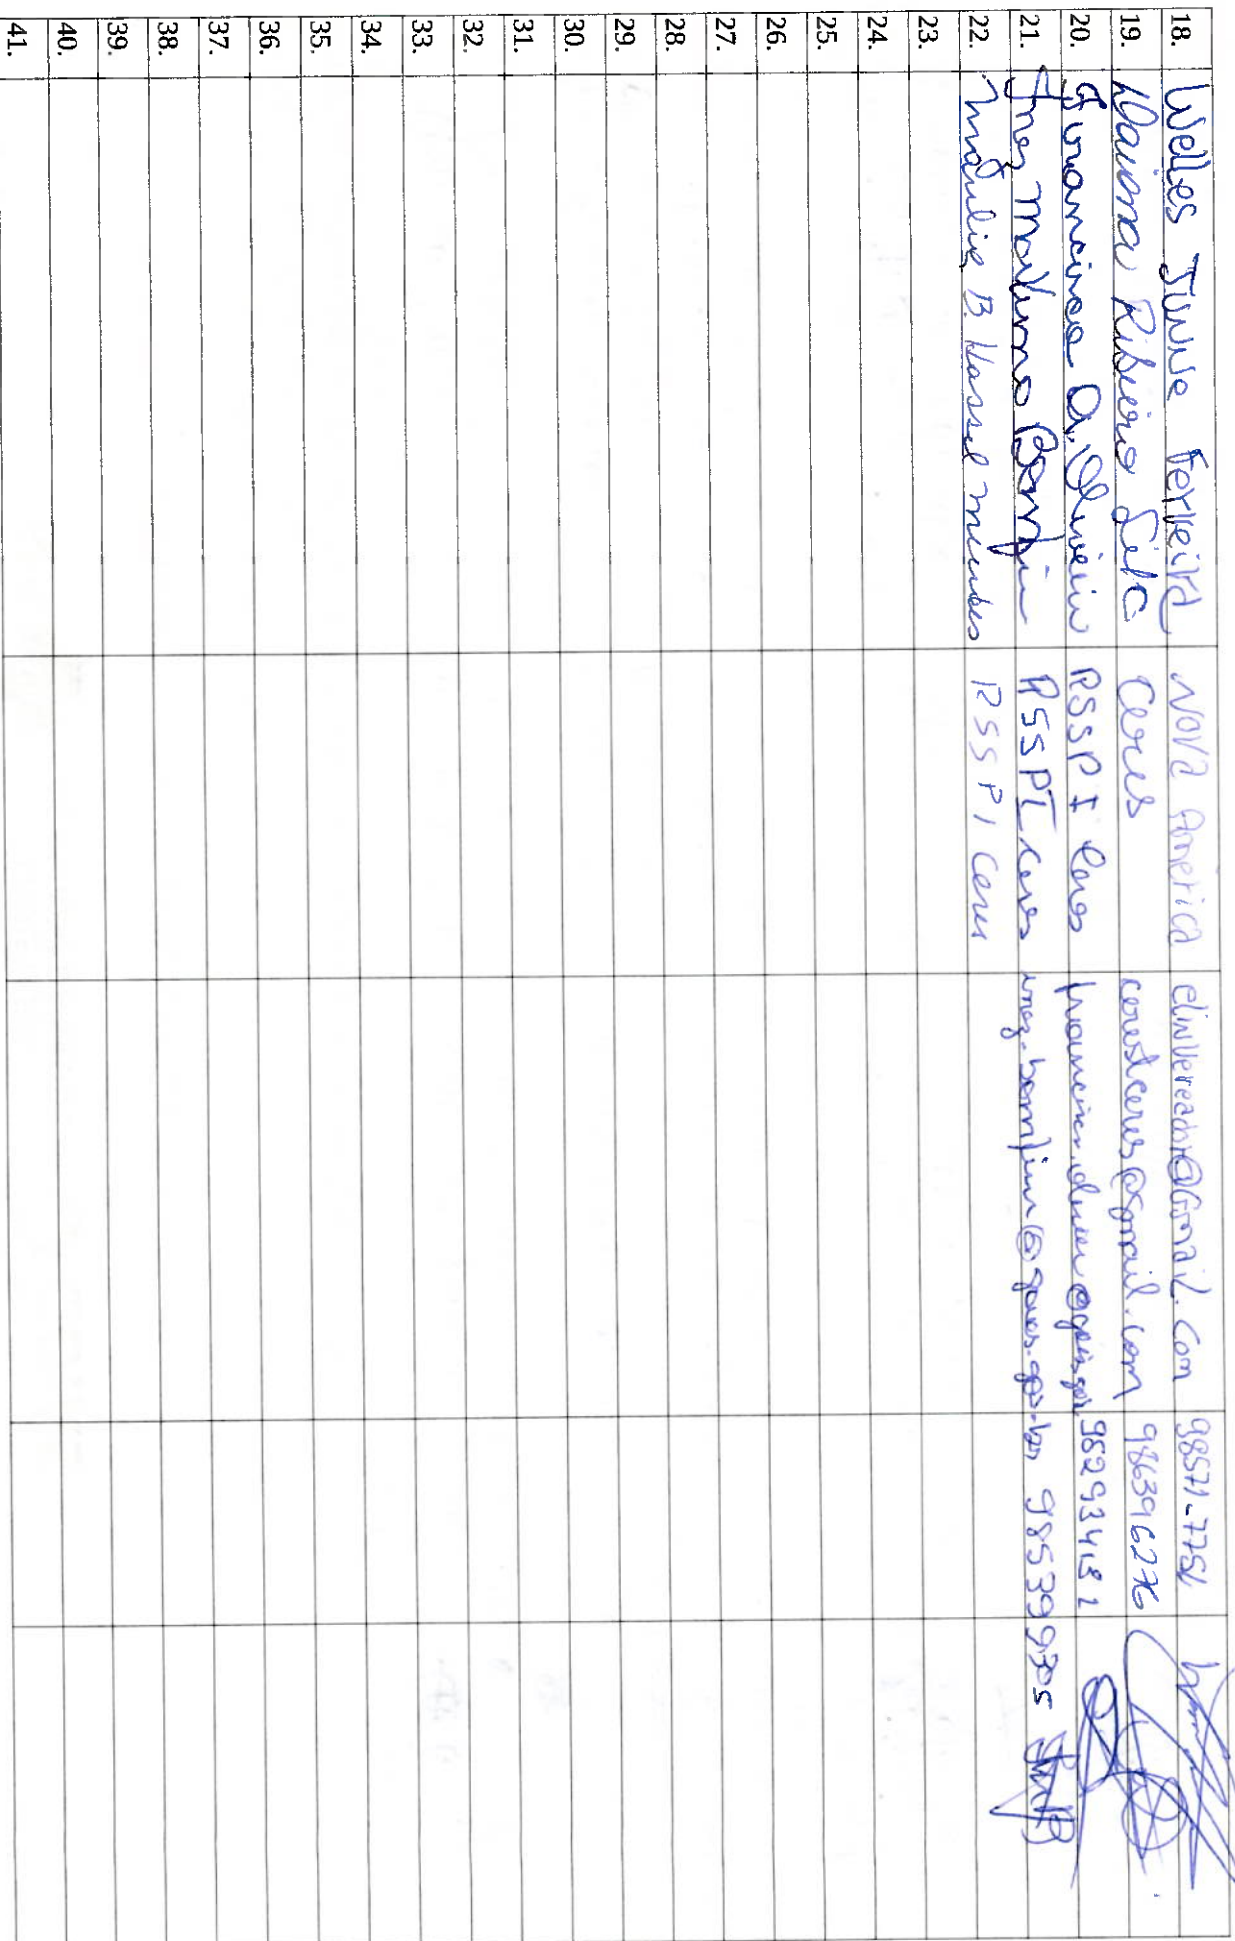 18. Welles Junno Ferreira Nova America elinvereador@Gmail.Com 98571-7754
19. Daiana Ribeiro Silva Ceres cerestceres@gmail.com 986396276
20. Francisca A. Oliveira RSSPI Ceres 982934182
21. Inez Martins Bomfim RSSPI Ceres inez.bomfim@goias.gov.br 985399305
22. B. Hassel Mendes RSSPI Ceres
23.
24.
25.
26.
27.
28.
29.
30.
31.
32.
33.
34.
35.
36.
37.
38.
39.
40.
41.